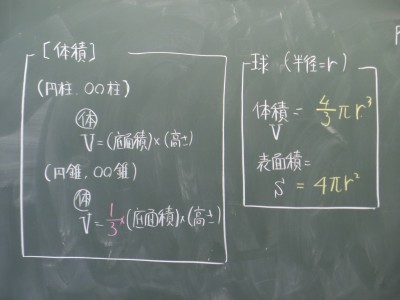 [体積]
(円柱、○○柱)
体
V=(底面積)×(高さ)
(円錐、○○錐)
体
V=1/3×(底面積)×(高さ)
球 (半径=r)
体積= 4/3πr³
V
表面積=
S = 4πr²